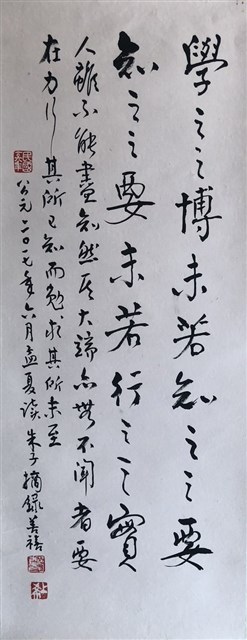 學之之博未若知之之要
知之之要未若行之之實
人雖不能盡知然其大端亦無不聞者要
在力行其所已知而勉求其所未至
公元二〇一七年六月孟夏讀朱子摘錄善禧